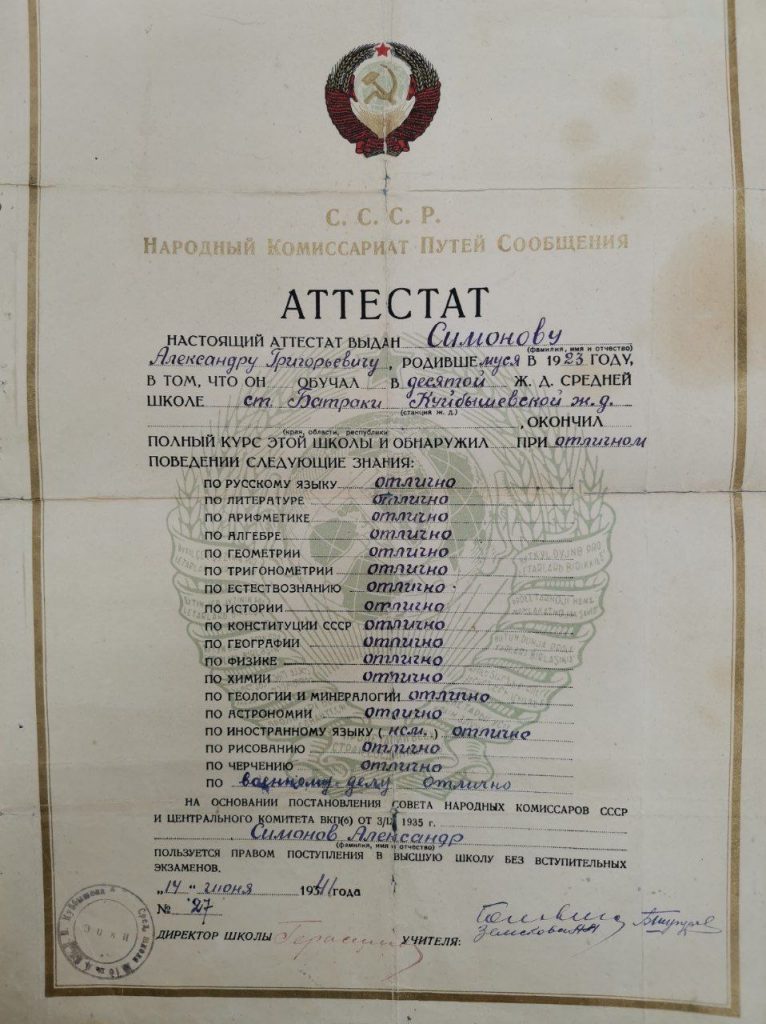 С. С. С. Р.
НАРОДНЫЙ КОМИССАРИАТ ПУТЕЙ СООБЩЕНИЯ
АТТЕСТАТ
НАСТОЯЩИЙ АТТЕСТАТ ВЫДАН Симонову
(фамилия, имя и отчество)
Александру Григорьевичу, РОДИВШЕмуся В 1923 ГОДУ,
В ТОМ, ЧТО ОН ОБУЧАЛ В десятой Ж. Д. СРЕДНЕЙ
ШКОЛЕ ст. Батраки Куйбышевской ж.д.
(станция ж. д.)
, ОКОНЧИЛ
(край, области, республики)
ПОЛНЫЙ КУРС ЭТОЙ ШКОЛЫ И ОБНАРУЖИЛ ПРИ отличном
ПОВЕДЕНИИ СЛЕДУЮЩИЕ ЗНАНИЯ:
ПО РУССКОМУ ЯЗЫКУ отлично
ПО ЛИТЕРАТУРЕ отлично
ПО АРИФМЕТИКЕ отлично
ПО АЛГЕБРЕ отлично
ПО ГЕОМЕТРИИ отлично
ПО ТРИГОНОМЕТРИИ отлично
ПО ЕСТЕСТВОЗНАНИЮ отлично
ПО ИСТОРИИ отлично
ПО КОНСТИТУЦИИ СССР отлично
ПО ГЕОГРАФИИ отлично
ПО ФИЗИКЕ отлично
ПО ХИМИИ отлично
ПО ГЕОЛОГИИ И МИНЕРАЛОГИИ отлично
ПО АСТРОНОМИИ отлично
ПО ИНОСТРАННОМУ ЯЗЫКУ (нем.) отлично
ПО РИСОВАНИЮ отлично
ПО ЧЕРЧЕНИЮ отлично
ПО военному делу отлично
НА ОСНОВАНИИ ПОСТАНОВЛЕНИЯ СОВЕТА НАРОДНЫХ КОМИССАРОВ СССР
И ЦЕНТРАЛЬНОГО КОМИТЕТА ВКП(б) ОТ 3/IX 1935 г.
Симонов Александр
(фамилия, имя и отчество)
ПОЛЬЗУЕТСЯ ПРАВОМ ПОСТУПЛЕНИЯ В ВЫСШУЮ ШКОЛУ БЕЗ ВСТУПИТЕЛЬНЫХ
ЭКЗАМЕНОВ.
„14" июня 1941 года
№ 27
ДИРЕКТОР ШКОЛЫ УЧИТЕЛЯ: